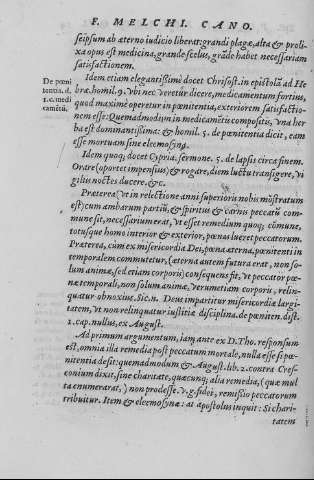 F. MELCHI. CANO.
seipsum ab æterno iudicio liberat: grandi plagæ, alta & proli-
xa opus est medicina, grande scelus, grādē habet necessariam
satisfactionem.
Idem etiam elegantißimè docet Chrisost. in epistolā ad He
De pœni bræ. homil. 9. vbi nec veretur dicere, medicamentum fortius,
tentia. d. quod maximè operetur in pœnitentia, exteriorem satisfactio-
1. c. medi nem esse: Quemadmodum in medicamētis compositis, vna her
camētū. ba est dominantißima: & homil. 5. de pœnitentia dicit, eam
esse mortuam sine eleemosyna.
Idem quoq; docet Cypria. sermone. 5. de lapsis circa finem.
Orare (oportet impensius) & rogare, diem luctu transigere, vi
gilijs noctes ducere. &c.
Præterea (vt in relectione anni superioris nobis mōstratum
est) cum ambarum partiū, & spiritus & carnis peccatū com-
mune sit, necessarium erat, vt esset remedium quoq; cōmune,
totusque homo interior & exterior, pœnas lueret peccatorum.
Præterea, cùm ex misericordia Dei, pœna æterna, pœnitenti in
temporalem commutetur, (æterna autem futura erat, non so-
lum animæ, sed etiam corporis) consequens fit, vt peccator pœ-
næ temporali, non solum animæ, verumetiam corporis, relin-
quatur obnoxius. Sic. n. Deus impartitur misericordiæ largi-
tatem, vt non relinquatur iustitiæ disciplina. de pœniten. dist.
2. cap. nullus, ex August.
Ad primum argumentum, iam ante ex D. Tho. responsum
est, omnia illa remedia post peccatum mortale, nulla esse si pœ-
nitentia desit: quemadmodum & August. lib. 2. contra Cres-
conium dixit, sine charitate, quæcunq; alia remedia, (quæ mul
ta enumerarat,) non prodesse. v. g. fidei, remißio peccatorum
tribuitur. Item & eleemosynæ: at apostolus inquit: Si chari-
tatem